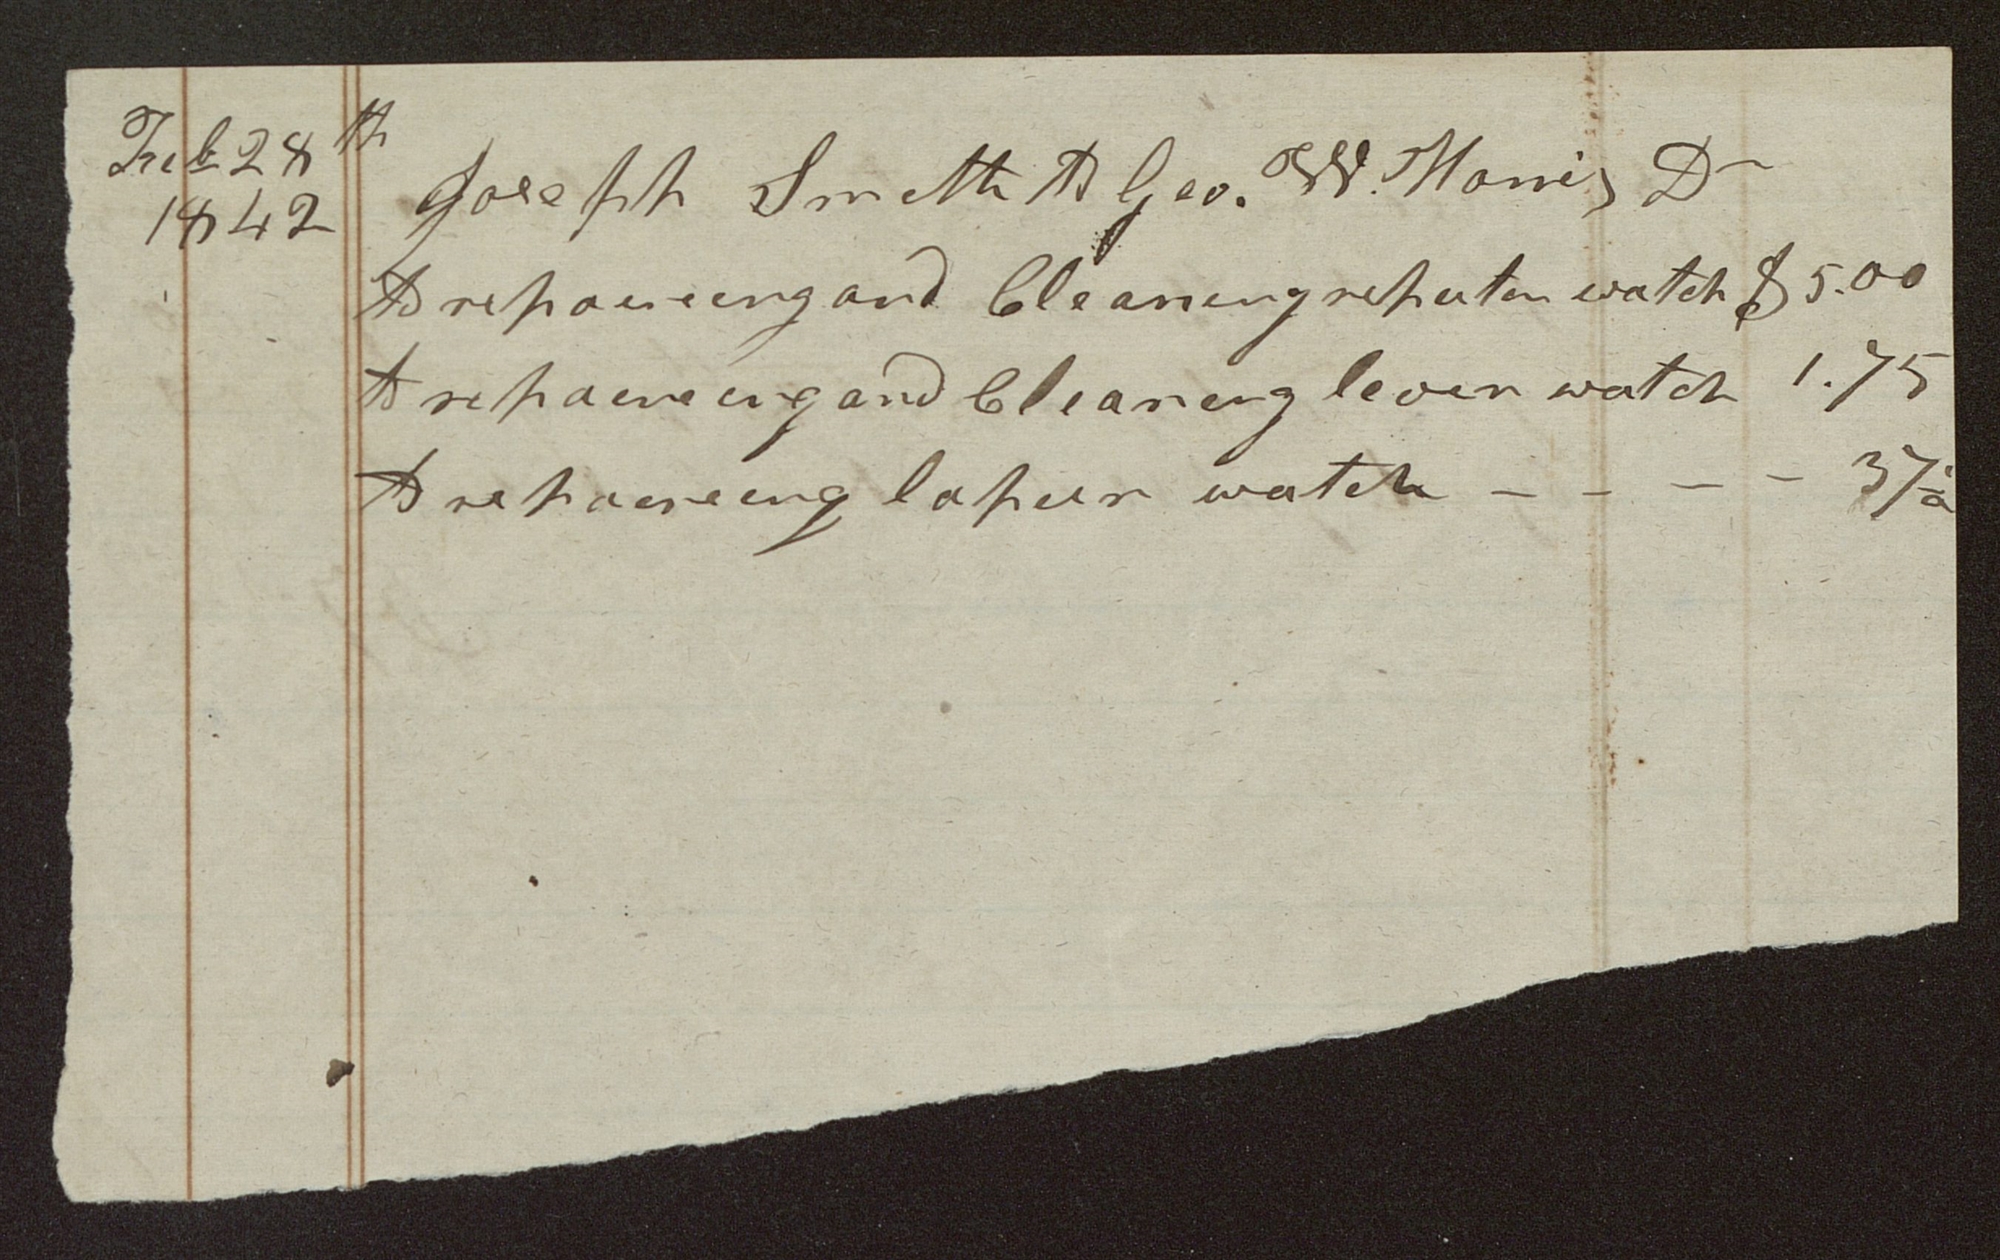 Feb 28th
1842
Joseph Smith to Geo. W. Harris Dr
To repaireing and Cleaning repeater watch $5.00
To repaireing and Cleaning lever watch 1.75
To repaireing lapier watch - - - - 37½